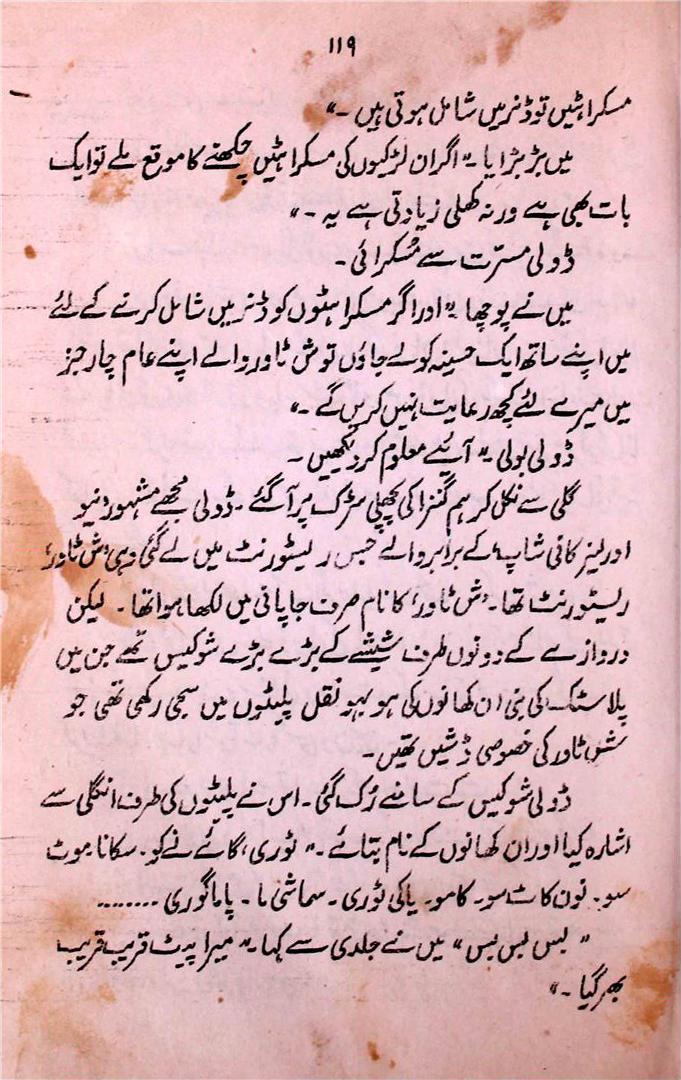 ۱۱۹
مسکراہٹیں تو ڈنر میں شامل ہوتی ہیں ۔"
میں بڑبڑایا ۔" اگر ان لڑکیوں کی مسکراہٹیں چکھنے کا موقع ملے تو ایک
بات بھی ہے ورنہ کھلی زیادتی ہے یہ ۔"
ڈولی مسرّت سے مُسکرائی ۔
میں نے پوچھا ۔" اور اگر مسکراہٹوں کو ڈنر میں شامل کرنے کے لئے
میں اپنے ساتھ ایک حسینہ کو لے جاؤں تو ش ٹاور والے اپنے عام چارجز
میں میرے لئے کچھ رعایت نہیں کریں گے ۔"
ڈولی بولی ۔" آیئے معلوم کر دیکھیں ۔
گلی سے نکل کر ہم گنزا کی پچھلی سڑک پر آگئے ۔ ڈولی مجھے مشہور 'نیو
اورلینز کافی شاپ' کے برابر والے جس ریسٹورنٹ میں لے گئی وہی 'ش ٹاور'
ریسٹورنٹ تھا ۔ 'ش ٹاور' کا نام صرف جاپانی میں لکھا ہوا تھا ۔ لیکن
دروازے کے دونوں طرف شیشے کے بڑے بڑے شوکیس تھے جن میں
پلاسٹک کی بنی ان کھانوں کی ہو بہو نقل پلیٹوں میں سجی رکھی تھی جو
ش ٹاور کی خصوصی ڈشیں تھیں ۔
ڈولی شوکیس کے سامنے رُک گئی ۔ اس نے پلیٹوں کی طرف انگلی سے
اشارہ کیا اور ان کھانوں کے نام بتائے ۔" ٹوری، گائے نے کو ۔ سکانا ۔ موٹ
سو ۔ نون کاٹ سو ۔ کامو ۔ یاکی ٹوری ۔ سماشی ما ۔ پاماگوری ........
" بس بس بس " میں نے جلدی سے کہا ۔" میرا پیٹ قریب قریب
بھر گیا ۔"